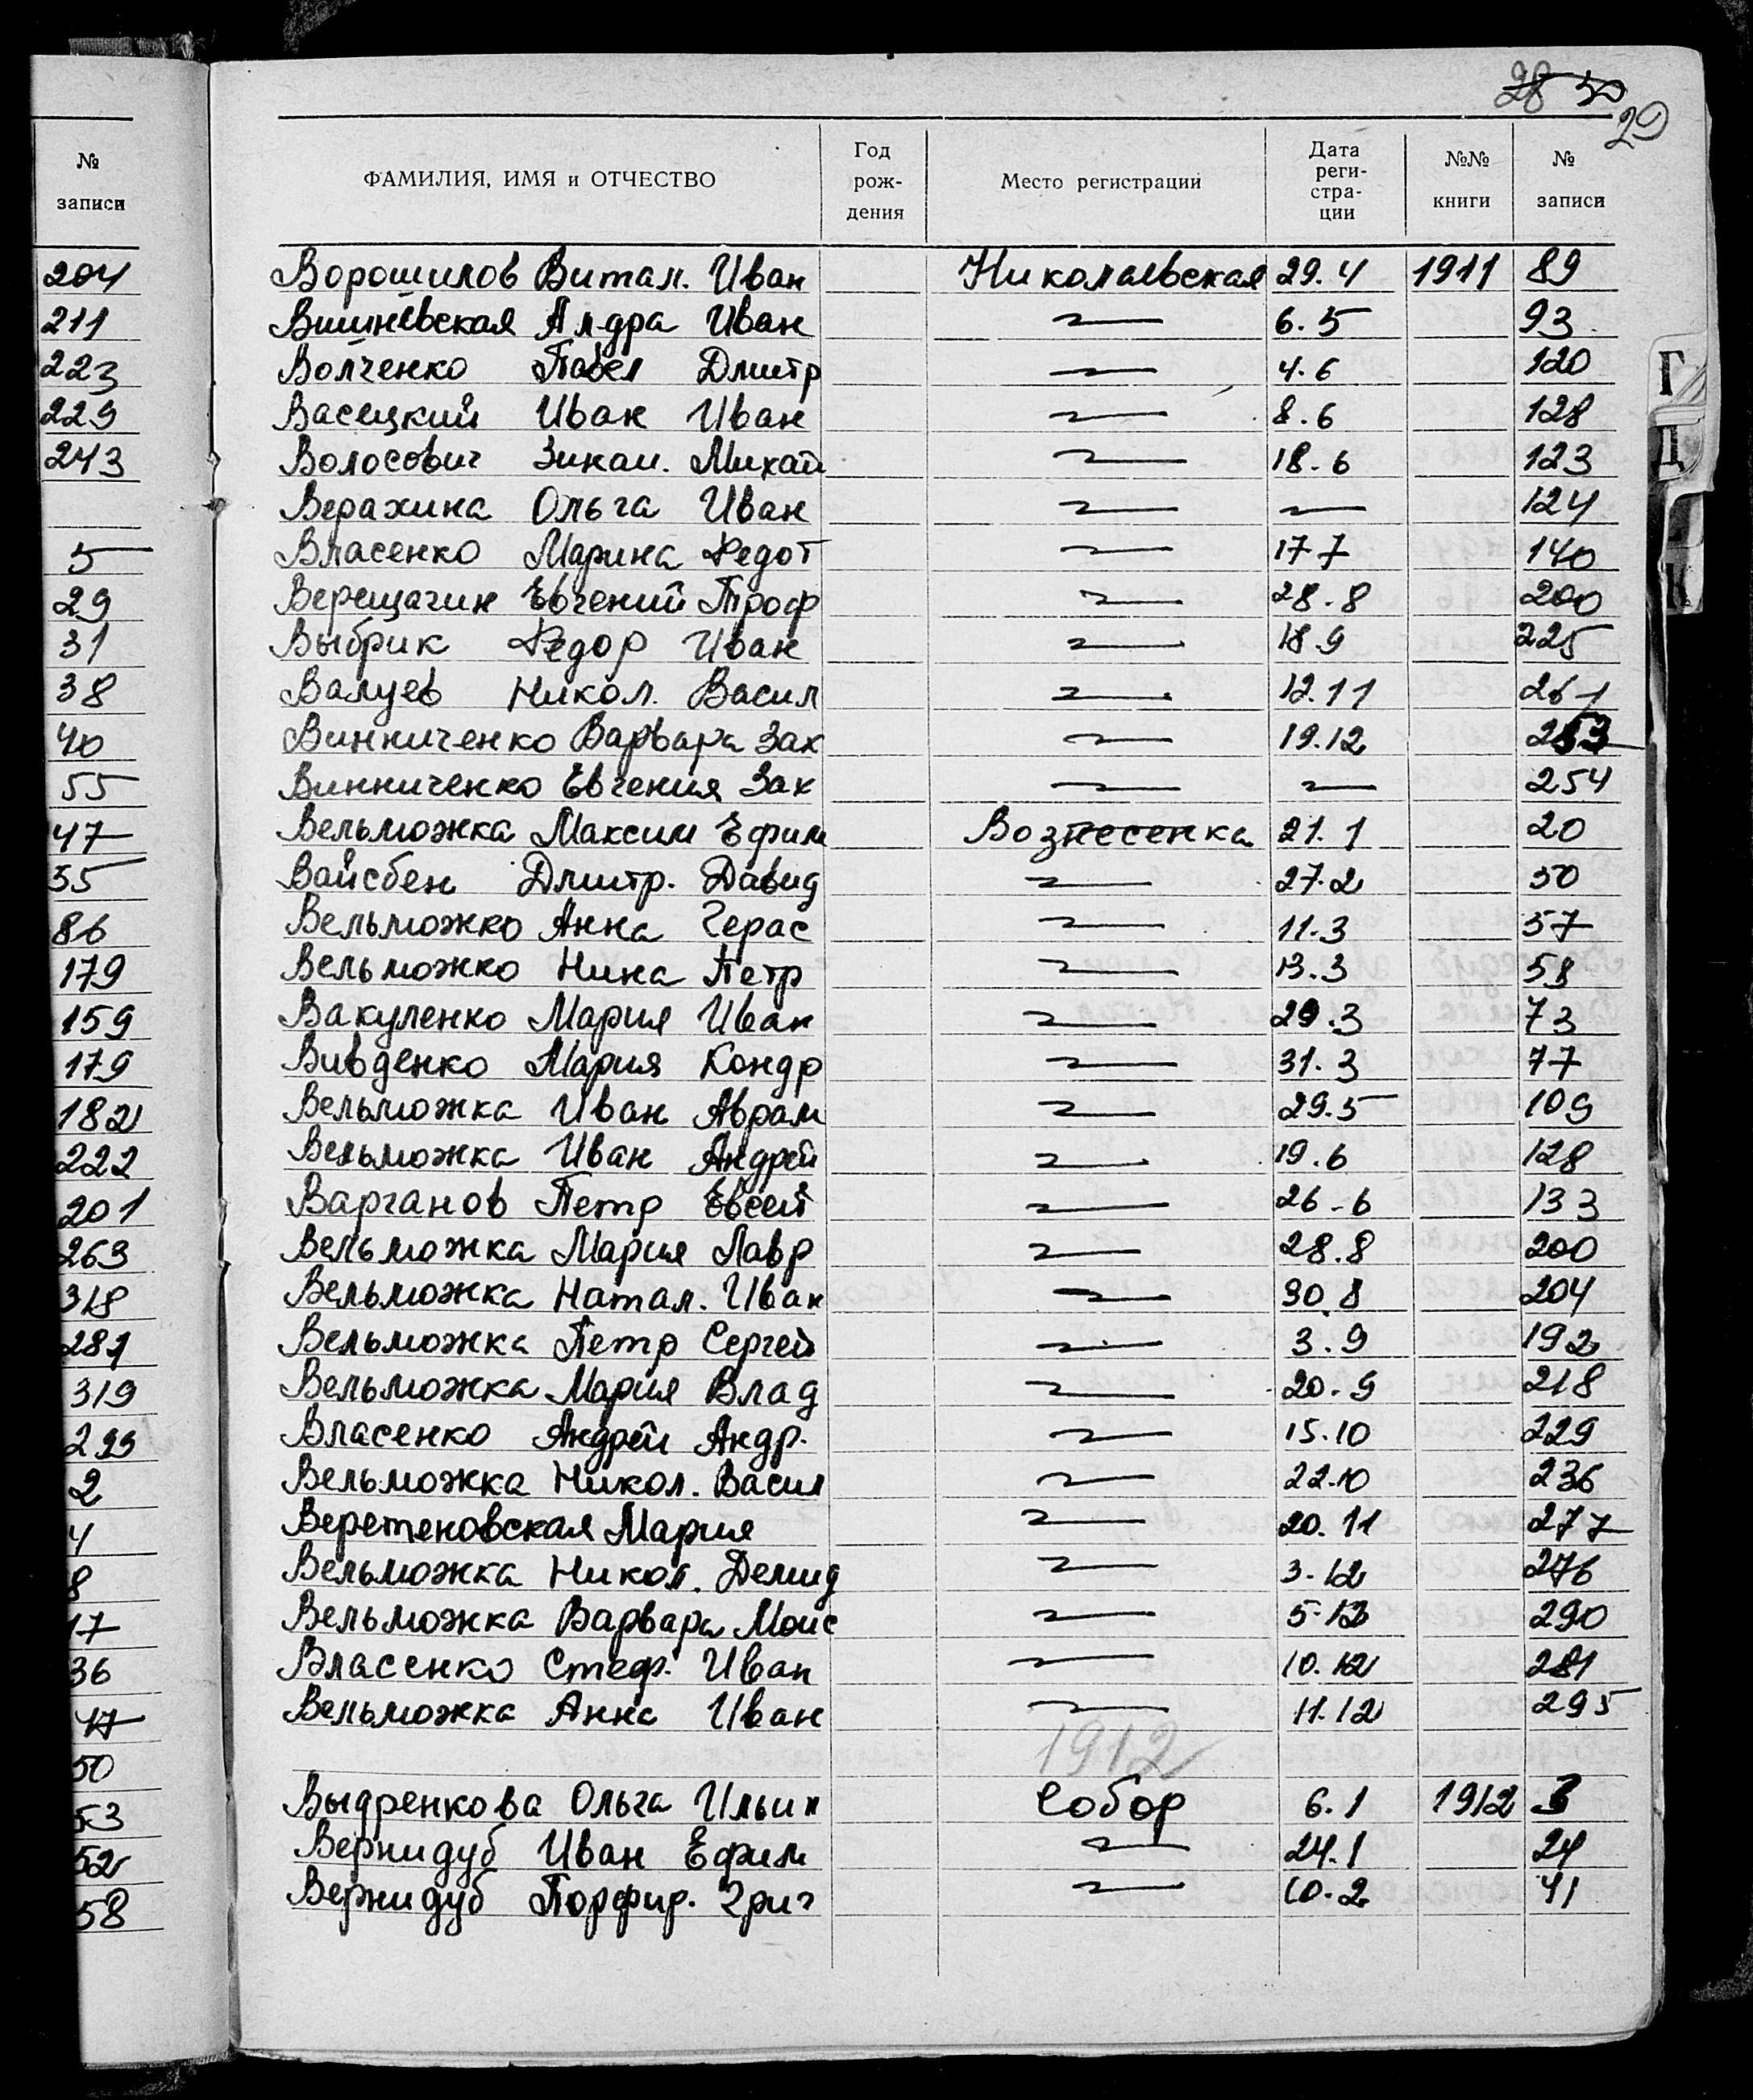 28 50
29
№ записи
ФАМИЛИЯ, ИМЯ и ОТЧЕСТВО Год рождения Место регистрации Дата регистрации №№ книги № записи
204 Ворошилов Витал. Иван Николаевская 29.4 1911 89
211 Вишневская Ал-дра Иван — 6.5 93
223 Волченко Павел Дмитр — 4.6 120
229 Васецкий Иван Иван — 8.6 128
243 Волосович Зинаи. Михаи — 18.6 123
Верахина Ольга Иван — — 124
5 Власенко Марина Федот — 17.7 140
29 Верещагин Евгений Троф — 28.8 200
31 Выбрик Федор Иван — 18.9 225
38 Валуев Никол. Васил — 12.11 261
40 Винниченко Варвара Зах — 19.12 253
55 Винниченко Евгения Зах — — 254
47 Вельможка Максим Ефим Вознесенка 21.1 20
55 Вайсбен Дмитр. Давид — 27.2 50
86 Вельможко Анна Герас — 11.3 57
179 Вельможко Нина Петр — 13.3 58
159 Вакуленко Мария Иван — 29.3 73
179 Вивденко Мария Кондр — 31.3 77
182 Вельможка Иван Аврам — 29.5 109
222 Вельможка Иван Андрей — 19.6 128
201 Варганов Петр Евсей — 26-6 133
263 Вельможка Мария Лавр — 28.8 200
318 Вельможка Натал. Иван — 30.8 204
281 Вельможка Петр Сергей — 3.9 192
319 Вельможка Мария Влад — 20.9 218
299 Власенко Андрей Андр. — 15.10 229
2 Вельможка Никол. Васил — 22.10 236
4 Веретеновская Мария — 20.11 277
8 Вельможка Никол. Демид — 3.12 276
17 Вельможка Варвара Моис — 5.12 290
36 Власенко Стеф. Иван — 10.12 281
47 Вельможка Анна Иван — 11.12 295
50 1912
53 Выдренкова Ольга Ильин Собор 6.1 1912 3
52 Вернидуб Иван Ефим — 24.1 24
58 Вернидуб Порфир. Григ — 10.2 41
Г
Д
К